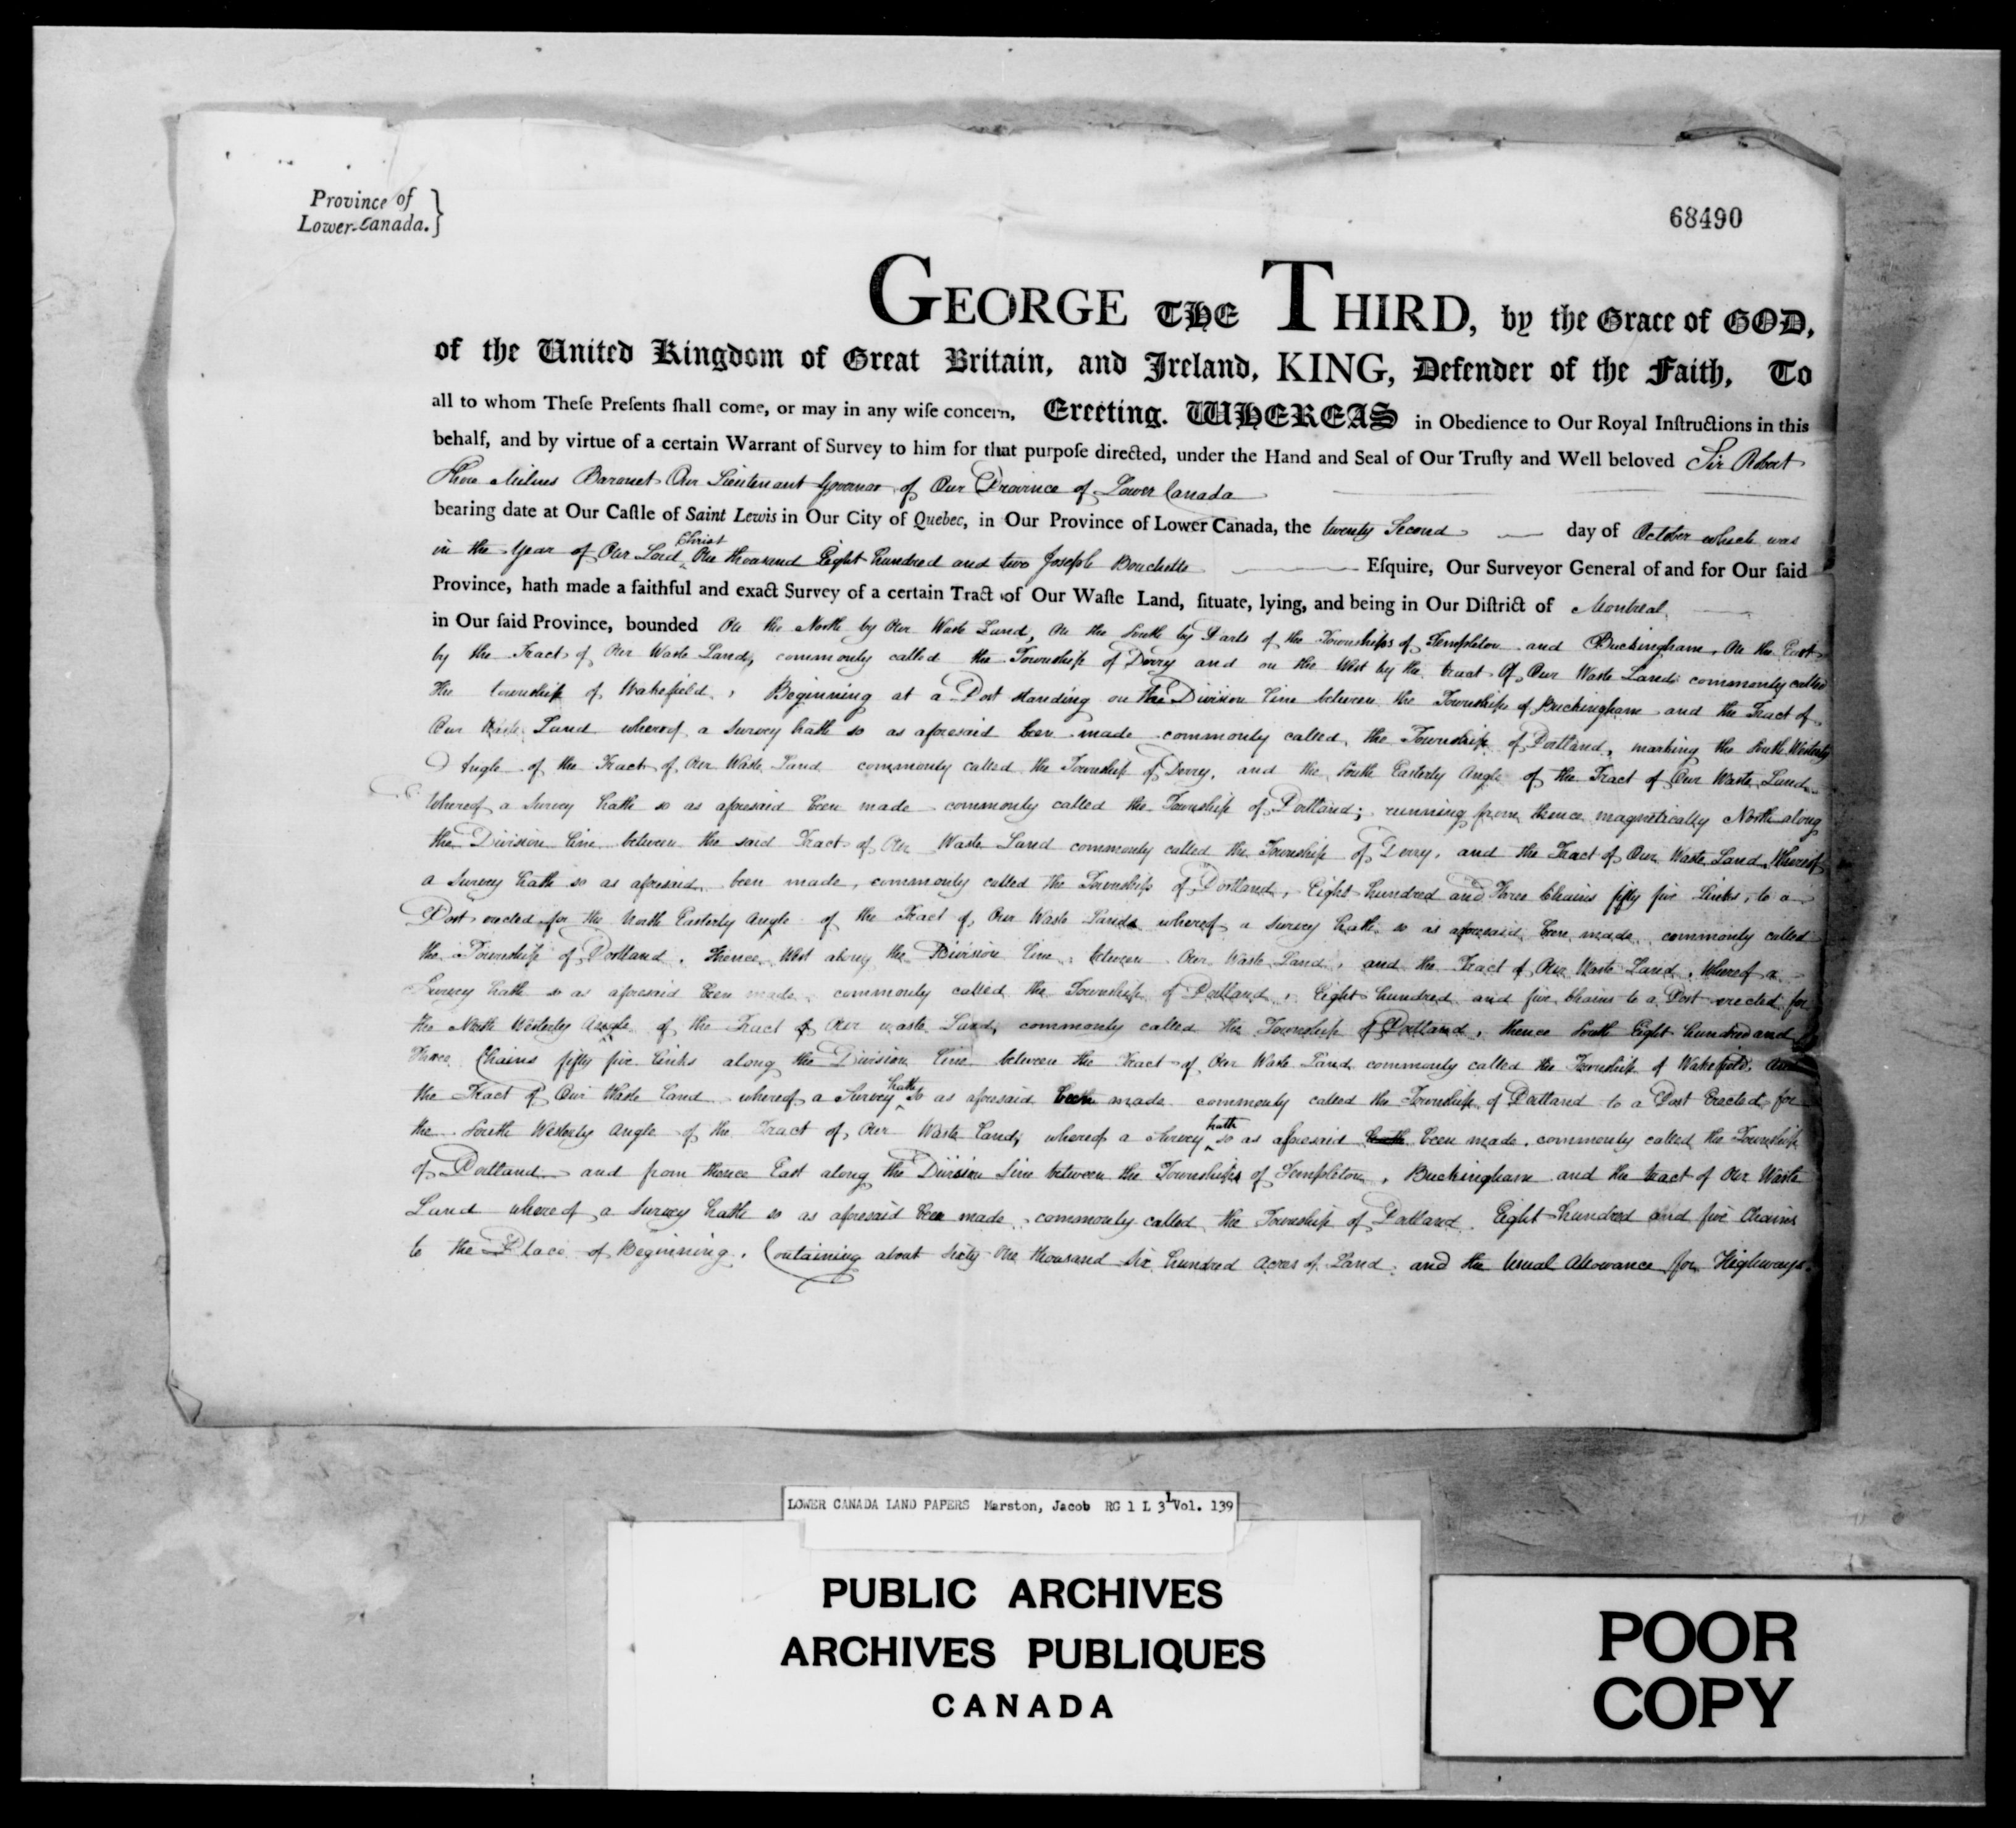 Province of
Lower-Canada. }
68490
GEORGE THE THIRD, by the Grace of GOD,
of the United Kingdom of Great Britain, and Ireland, KING, Defender of the Faith, To
all to whom Theſe Preſents ſhall come, or may in any wiſe concern, Greeting. WHEREAS in Obedience to Our Royal Inſtructions in this
behalf, and by virtue of a certain Warrant of Survey to him for that purpoſe directed, under the Hand and Seal of Our Truſty and Well beloved Sir Robert
Shore Milnes Baronet Our Lieutenant Governor of Our Province of Lower Canada
bearing date at Our Caſtle of Saint Lewis in Our City of Quebec, in Our Province of Lower Canada, the twenty Second day of October which was
in the Year of Our Lord Christ One thousand Eight hundred and two Joseph Bouchette Eſquire, Our Surveyor General of and for Our ſaid
Province, hath made a faithful and exact Survey of a certain Tract of Our Waſte Land, ſituate, lying, and being in Our Diſtrict of Montreal
in Our ſaid Province, bounded On the North by Our Waste Land, On the South by Parts of the Townships of Templeton and Buckingham, On the East
by the Tract of Our Waste Land, commonly called the Township of Derry and on the West by the tract Of Our Waste Lands commonly called
the township of Wakefield, Beginning at a Post standing on the Division line between the Township of Buckingham and the Tract of
Our Waste Land whereof a Survey hath so as aforesaid been made commonly called the Township of Portland, marking the South Westerly
Angle of the Tract of Our Waste Land commonly called the Township of Derry, and the South Easterly Angle of the Tract of Our Waste Land
Whereof a Survey hath so as aforesaid been made commonly called the Township of Portland; running from thence magnetically North along
the Division line between the said Tract of Our Waste Land commonly called the Township of Derry, and the Tract of Our Waste Land Whereof
a Survey hath so as aforesaid been made, commonly called the Township of Portland, Eight hundred and Three Chains fifty five Links, to a
Post erected for the North Easterly Angle of the Tract of Our Waste Lands whereof a Survey hath so as aforesaid been made commonly called
the Township of Portland. Thence West along the Division line, between Our Waste Land, and the Tract of Our Waste Land, Whereof a
Survey hath so as aforesaid been made, commonly called the Township of Portland, Eight hundred and five Chains to a Post erected for
the North Westerly Angle of the Tract of Our waste Land, commonly called the Township of Portland, thence South Eight hundred and
Three Chains fifty five links along the Division line between the Tract of Our Waste Land commonly called the Township of Wakefield, and
the Tract of Our Waste Land whereof a Survey hath so as aforesaid been made commonly called the Township of Portland to a Post Erected for
the South Westerly Angle of the Tract of Our Waste Land, whereof a Survey hath so as aforesaid hath been made, commonly called the Township
of Portland and from thence East along the Division line between the Townships of Templeton, Buckingham and the tract of Our Waste
Land whereof a Survey hath so as aforesaid been made, commonly called the Township of Portland. Eight hundred and five Chains
to the Place of Beginning. Containing about Sixty One thousand Six hundred Acres of Land, and the Usual Allowance for Highways.
LOWER CANADA LAND PAPERS Marston, Jacob RG 1 L 3 L Vol. 139
PUBLIC ARCHIVES
ARCHIVES PUBLIQUES
CANADA
POOR
COPY